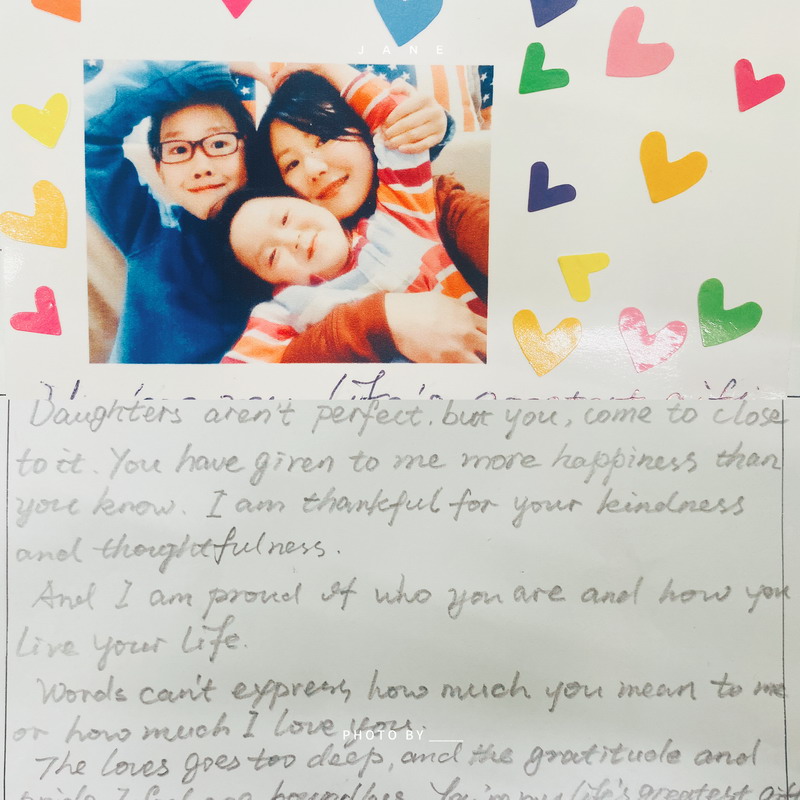 JANE
life's greatest gift
Daughters aren't perfect. but you, come to close
to it. You have given to me more happiness than
you know. I am thankful for your kindness
and thoughtfulness.
And I am proud of who you are and how you
live your life.
Words can't express how much you mean to me
or how much I love you.
PHOTO BY
The loves goes too deep, and the gratitude and
pride I feel are boundless. You're my life's greatest gift